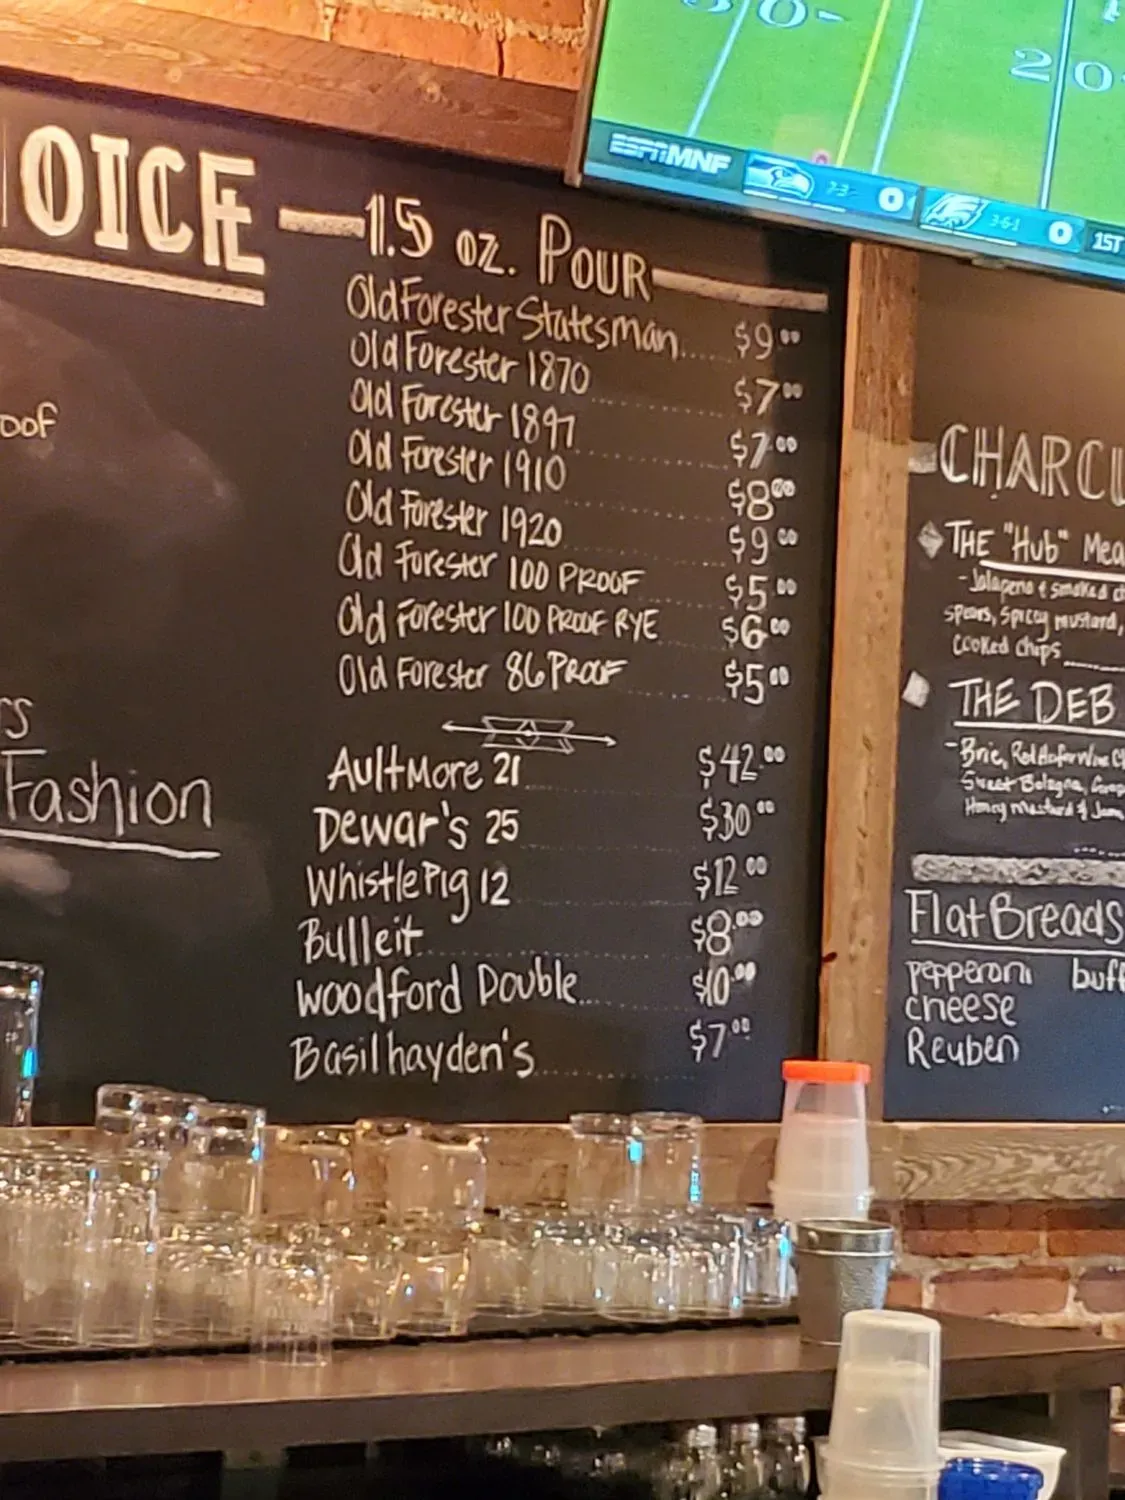 OICE
1.5 oz. POUR
Old Forester Statesman..... $9.00
Old Forester 1870 ........ $7.00
Old Forester 1897 ........ $7.00
Old Forester 1910 ........ $8.00
Old Forester 1920 ........ $9.00
Old Forester 100 PROOF ........ $5.00
Old Forester 100 PROOF RYE $6.00
Old Forester 86 PROOF ........ $5.00
AultMore 21 ........ $42.00
Dewar's 25 ........ $30.00
WhistlePig 12 ........ $12.00
Bulleit ........ $8.00
Woodford Double.... $10.00
Basil hayden's ........ $7.00
oof
rs
Fashion
30-
20-
ESPN MNF
7-3
0
3-6-1
0
1ST
CHARCU
THE "Hub" Mea
- Jalapeno & smoked ch
spears, spicy mustard,
cooked chips
THE DEB
- Brie,
Sweet Bologna,
Honey mustard & Jam
FlatBreads
pepperoni buff
cheese
Reuben